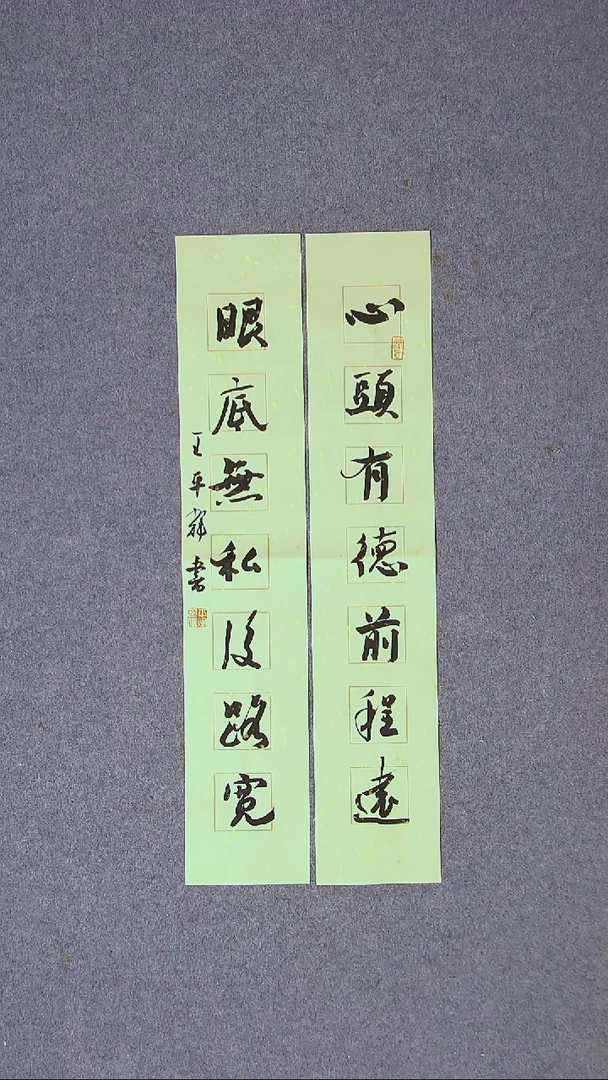 心頭有德前程遠
眼底無私後路寬
王平輝書